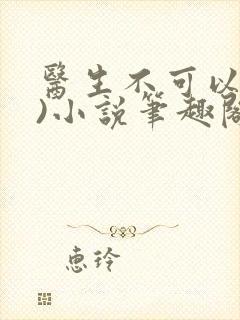 醫生不可以
)小說筆趣閣
惠玲